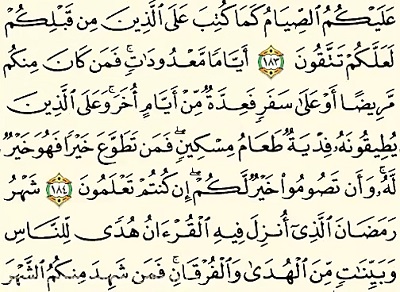 عَلَيْكُمُ ٱلصِّيَامُ كَمَا كُتِبَ عَلَى ٱلَّذِينَ مِن قَبْلِكُمْ
لَعَلَّكُمْ تَتَّقُونَ ١٨٣ أَيَّامًا مَّعْدُودَٰتٍۚ فَمَن كَانَ مِنكُم
مَّرِيضًا أَوْ عَلَىٰ سَفَرٍ فَعِدَّةٌ مِّنْ أَيَّامٍ أُخَرَۚ وَعَلَى ٱلَّذِينَ
يُطِيقُونَهُۥ فِدْيَةٌ طَعَامُ مِسْكِينٍۖ فَمَن تَطَوَّعَ خَيْرًا فَهُوَ خَيْرٌ
لَّهُۥۚ وَأَن تَصُومُوا۟ خَيْرٌ لَّكُمْۖ إِن كُنتُمْ تَعْلَمُونَ ١٨٤ شَهْرُ
رَمَضَانَ ٱلَّذِىٓ أُنزِلَ فِيهِ ٱلْقُرْءَانُ هُدًى لِّلنَّاسِ
وَبَيِّنَٰتٍ مِّنَ ٱلْهُدَىٰ وَٱلْفُرْقَانِۚ فَمَن شَهِدَ مِنكُمُ ٱلشَّهْرَ